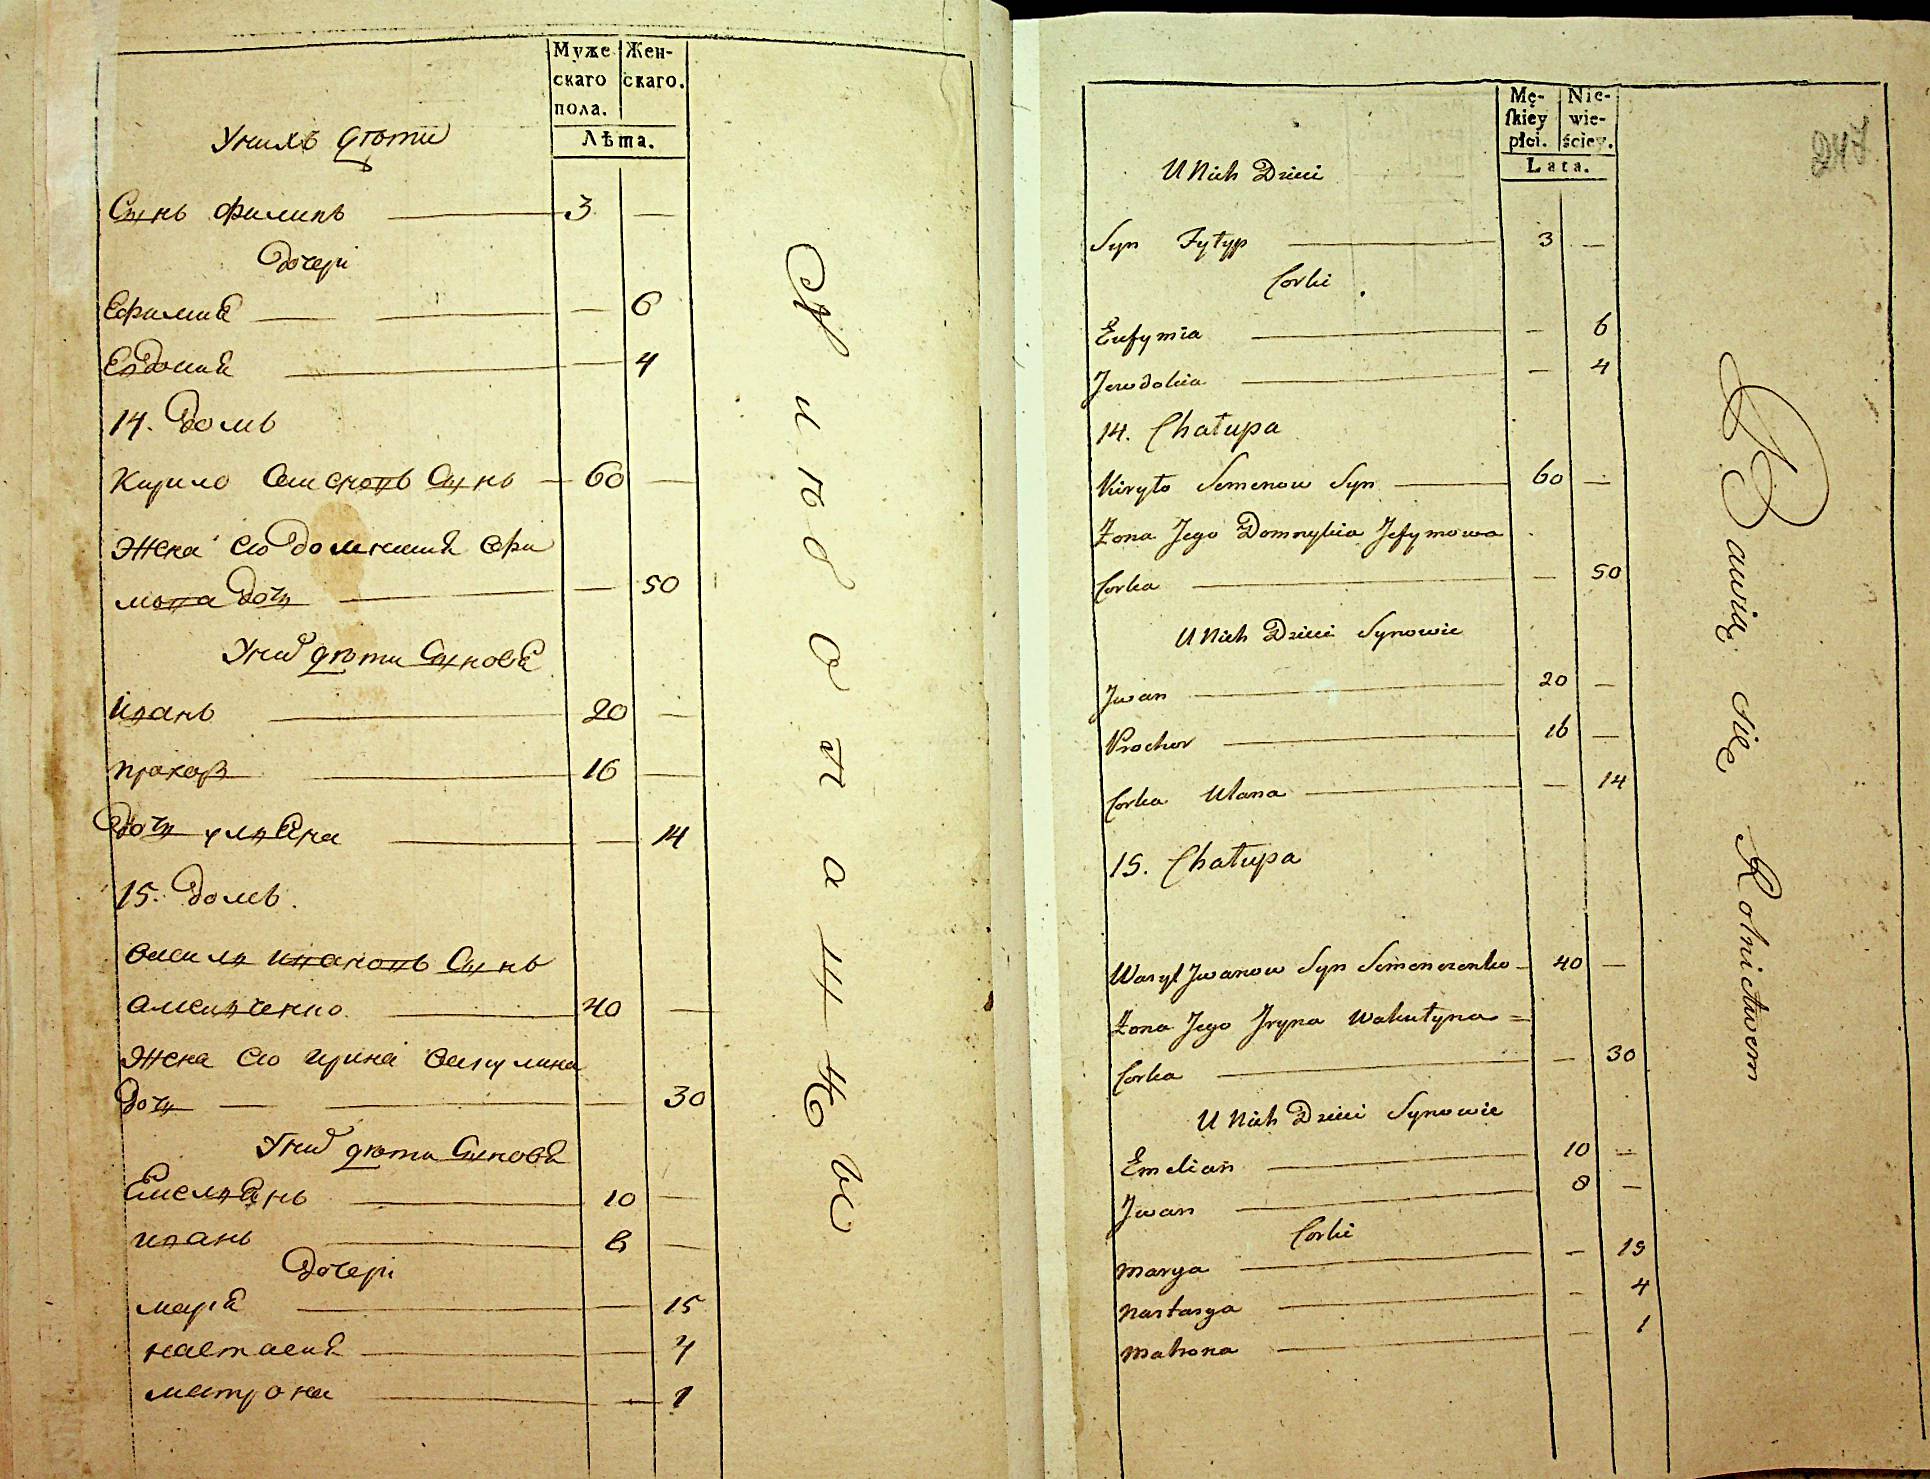 Муже
скаго
пола.
Жен-
скаго.
Лѣта.
Унихъ дѣти
Сынь Филипъ 3 —
Дочери
Ефимия — 6
Евдокия — 4
14. Домъ
Кирило Семеновъ Сынь 60 —
Жена его Домникия Ефи
мова Дочь — 50
Унихъ дѣти Сыновя
Иванъ 20 —
Прохоръ 16 —
Дочь улияна — 14
15. Домъ.
Василь Ивановъ Сынъ
40 —
Жена его Ирина Вакулина
Дочь — 30
Унихъ дѣти Сыновя
Емелиянъ 10 —
Иванъ 8 —
Дочери
Мария — 15
Настасия — 4
Матрона — 1
Mę-
skiey
płci.
Nie-
wie-
ściey.
Lata.
247
U Nich Dzieci
Syn Fyłyp 3 —
Corki
Eufymia — 6
Jewdokia — 4
14. Chałupa
Kiryło Semenow Syn 60 —
Żona Jego Domnykia Jefymowa
Corka — 50
U Nich Dzieci Synowie
Jwan 20 —
Prochor 16 —
Corka Ulana — 14
15. Chałupa
Wasyl Jwanow Syn Semenczenko 40 —
Żona Jego Jryna Wakułyna =
Corka — 30
U Nich Dzieci Synowie
Emelian 10 —
Jwan 8 —
Corki
Marya — 15
Nastasya — 4
Matrona — 1
Bawią się Rolnictwem